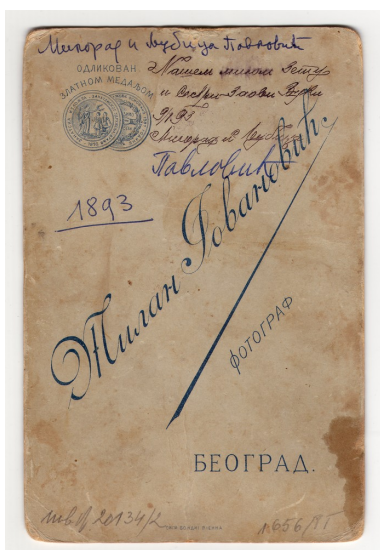 Милорад и Љубица Павловић
ОДЛИКОВАН
ЗЛАТНОМ МЕДАЉОМ
Нашем милом Зету
и
9/I 93
Милорад и Љубица
Павловић
1893
Милан Јовановић
ФОТОГРАФ
БЕОГРАД.
инв. бр. 20134/2
1656/81